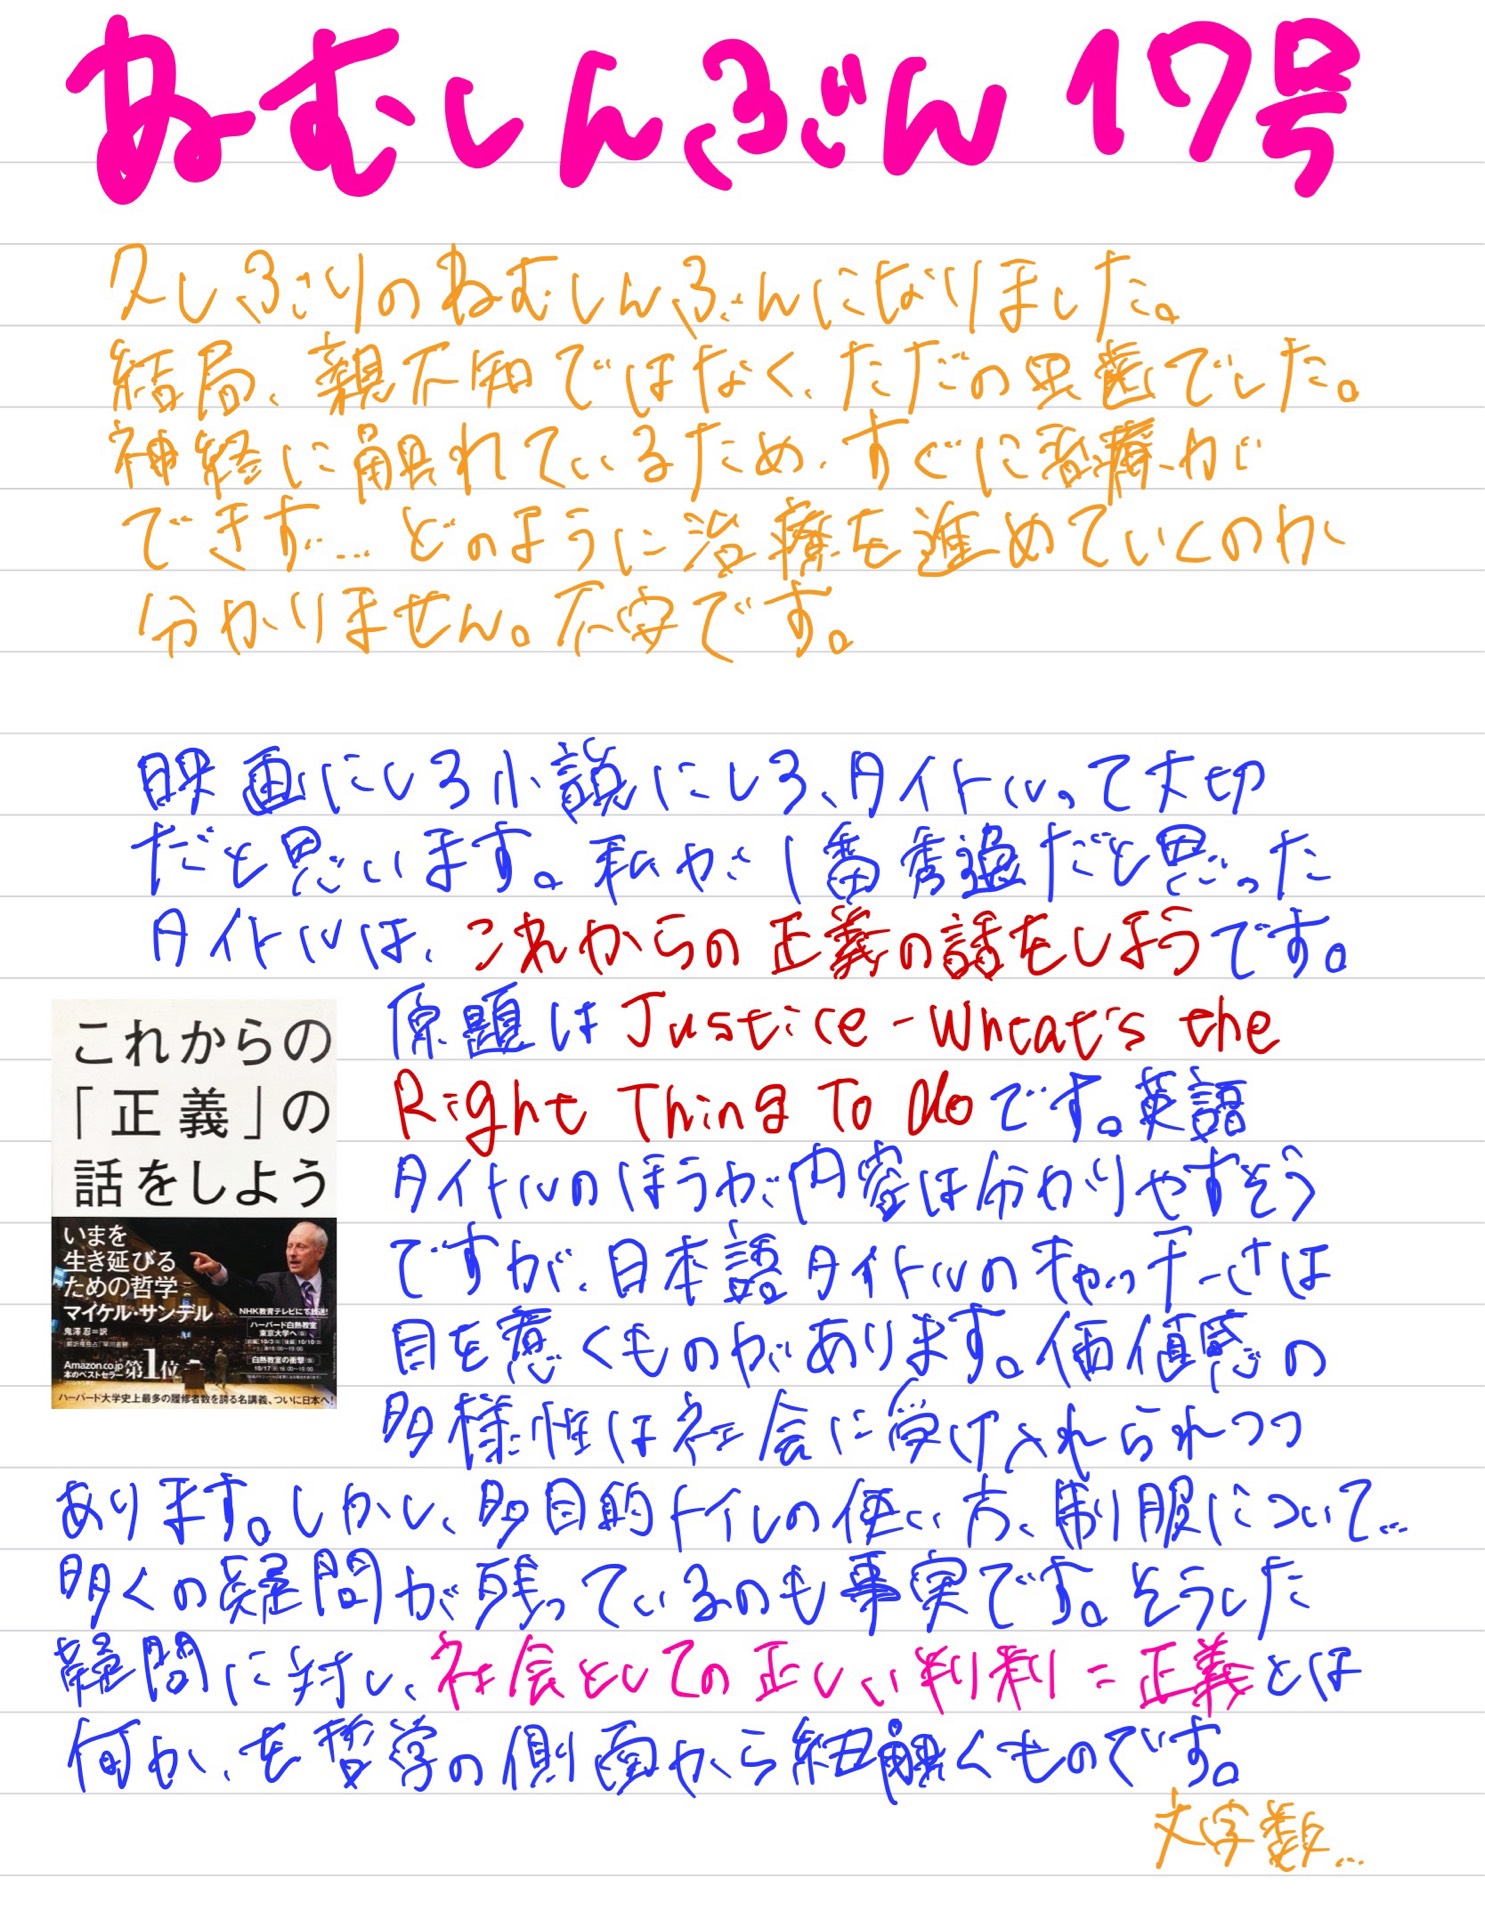 ねむしんぶん17号
久しぶりのねむしんぶんになりました。
結局、親不知ではなく、ただの虫歯でした。
神経に触れているため、すぐに治療が
できず…どのように治療を進めていくのか
分かりません。不安です。
映画にしろ小説にしろ、タイトルって大切
だと思います。私が1番秀逸だと思った
タイトルは、これからの正義の話をしようです。
原題は Justice - What's the
Right Thing To doです。英語
タイトルのほうが内容は分かりやすそう
ですが、日本語タイトルのキャッチーさは
目を惹くものがあります。価値感の
多様性は社会に受け入れられつつ
あります。しかし、多目的トイレの使い方、制服について…
多くの疑問が残っているのも事実です。そうした
疑問に対し、社会としての正しい判断=正義とは
何か、を哲学の側面から紐解くものです。
文字数…
これからの
「正義」の
話をしよう
いまを
生き延びる
ための哲学
マイケル・サンデル
鬼澤 忍=訳
NHK教育テレビにて放送!
ハーバード白熱教室
東京大学へ
白熱教室の衝撃
Amazon.co.jp
本のベストセラー 第1位
ハーバード大学史上最多の履修者数を誇る名講義、ついに日本へ!